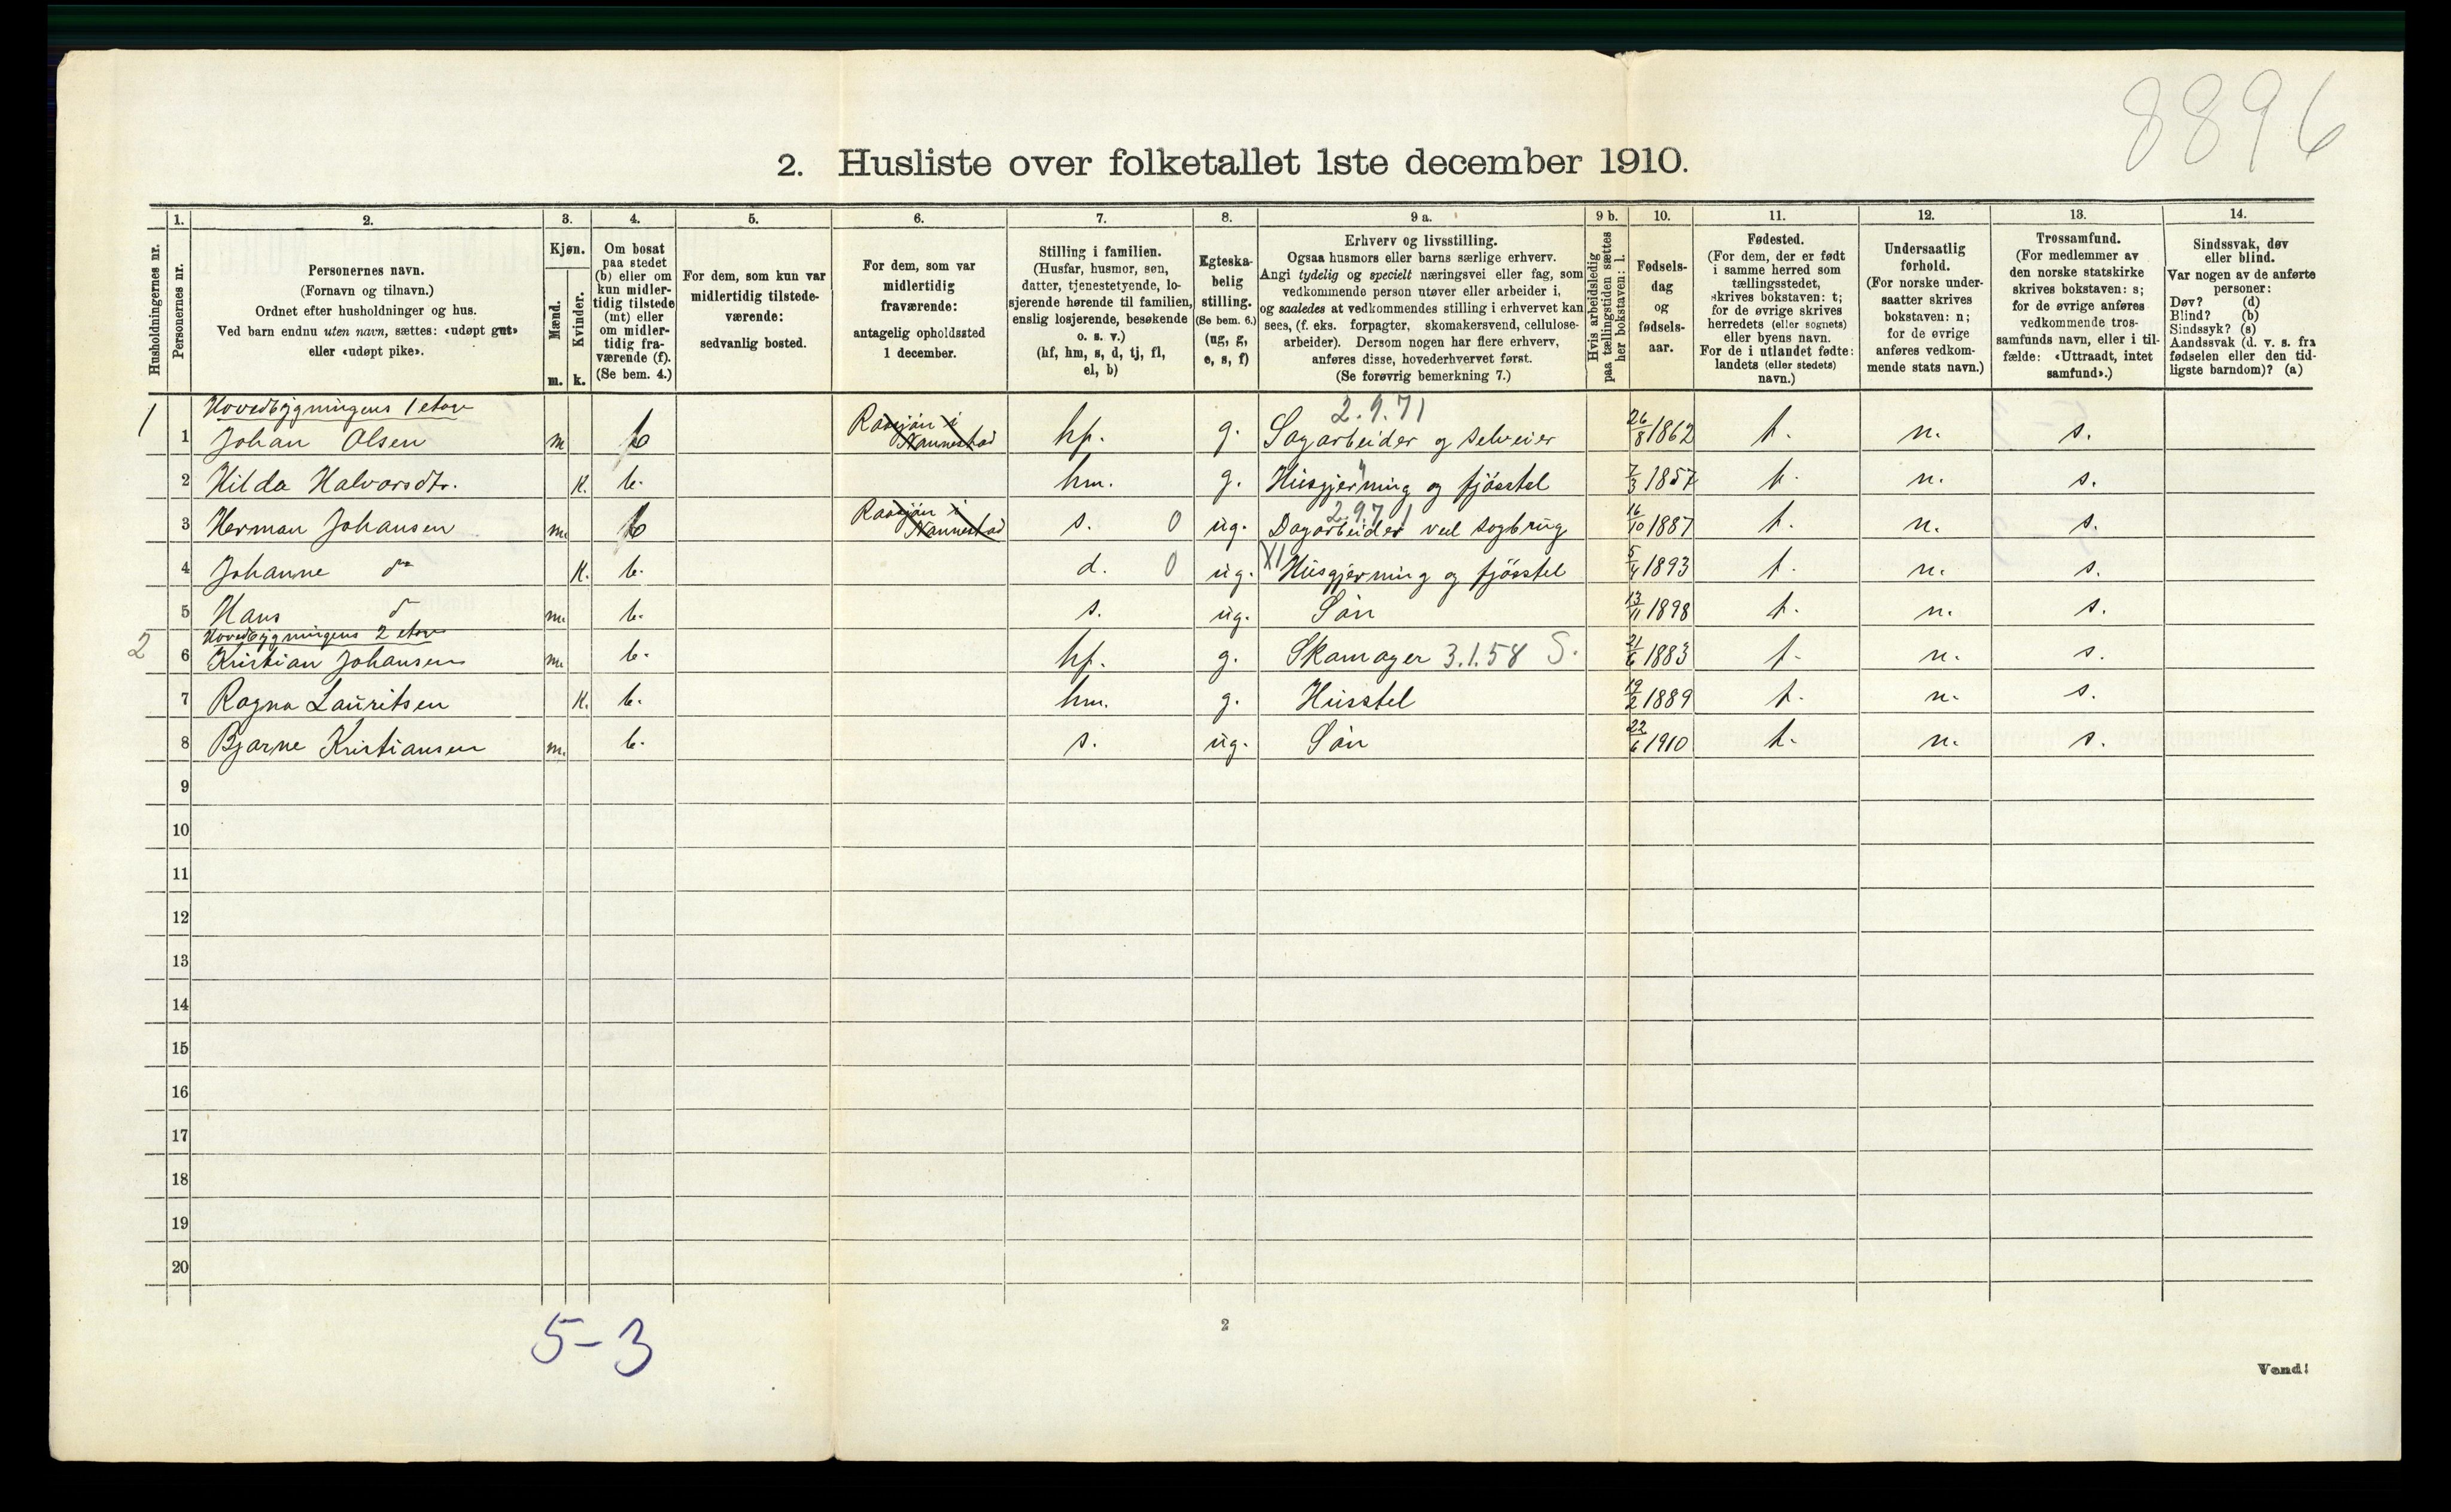 8896
2. Husliste over folketallet 1ste december 1910.
1. 2. 3. 4. 5. 6. 7. 8. 9 a. 9 b. 10. 11. 12. 13. 14.
Husholdningernes nr.
Personernes nr.
Personernes navn.
(Fornavn og tilnavn.)
Ordnet efter husholdninger og hus.
Ved barn endnu uten navn, sættes: «udøpt gut»
eller «udøpt pike».
Kjøn.
Mænd.
Kvinder.
m. k.
Om bosat
paa stedet
(b) eller om
kun midler-
tidig tilstede
(mt) eller
om midler-
tidig fra-
værende (f).
(Se bem. 4.)
For dem, som kun var
midlertidig tilstede-
værende:
sedvanlig bosted.
For dem, som var
midlertidig
fraværende:
antagelig opholdssted
1 december.
Stilling i familien.
(Husfar, husmor, søn,
datter, tjenestetyende, lo-
sjerende hørende til familien,
enslig losjerende, besøkende
o. s. v.)
(hf, hm, s, d, tj, fl,
el, b)
Egteska-
belig
stilling.
(Se bem. 6.)
(ug, g,
e, s, f)
Erhverv og livsstilling.
Ogsaa husmors eller barns særlige erhverv.
Angi tydelig og specielt næringsvei eller fag, som
vedkommende person utøver eller arbeider i,
og saaledes at vedkommendes stilling i erhvervet kan
sees, (f. eks. forpagter, skomakersvend, cellulose-
arbeider). Dersom nogen har flere erhverv,
anføres disse, hovederhvervet først.
(Se forøvrig bemerkning 7.)
Hvis arbeidsledig
paa tællingstiden sættes
her bokstaven: l.
Fødsels-
dag
og
fødsels-
aar.
Fødested.
(For dem, der er født
i samme herred som
tællingsstedet,
skrives bokstaven: t;
for de øvrige skrives
herredets (eller sognets)
eller byens navn.
For de i utlandet fødte:
landets (eller stedets)
navn.)
Undersaatlig
forhold.
(For norske under-
saatter skrives
bokstaven: n;
for de øvrige
anføres vedkom-
mende stats navn.)
Trossamfund.
(For medlemmer av
den norske statskirke
skrives bokstaven: s;
for de øvrige anføres
vedkommende tros-
samfunds navn, eller i til-
fælde: «Uttraadt, intet
samfund».)
Sindssvak, døv
eller blind.
Var nogen av de anførte
personer:
Døv? (d)
Blind? (b)
Sindssyk? (s)
Aandssvak (d. v. s. fra
fødselen eller den tid-
ligste barndom)? (a)
Hovedbygningens 1 etage 2.9.71
1 1 Johan Olsen m b hf. g. Sagarbeider og selveier 26/8 1862 t. n. s.
2 Hilda Halvorsdtr. k. b. hm. g. Husgjerning og fjösstel 7/3 1857 t. n. s.
2.97.1
3 Herman Johansen m. b s. 0 ug. Dagarbeider ved sagbrug 16/10 1887 t. n. s.
4 Johanne do k. b. d. 0 ug. XI Husgjerning og fjösstel 5/4 1893 t. n. s.
5 Hans do m. b. s. ug. Sön 13/11 1898 t. n. s.
Hovedbygningens 2 etage
2 6 Kristian Johansen m. b. hf. g. Skomager 3.1.58 S. 21/6 1883 t. n. s.
7 Ragna Lauritsen k. b. hm. g. Husstel 19/2 1889 t. n. s.
8 Bjarne Kristiansen m. b. s. ug. Sön 22/6 1910 t. n. s.
9
10
11
12
13
14
15
16
17
18
19
20
5-3
2
Vend!